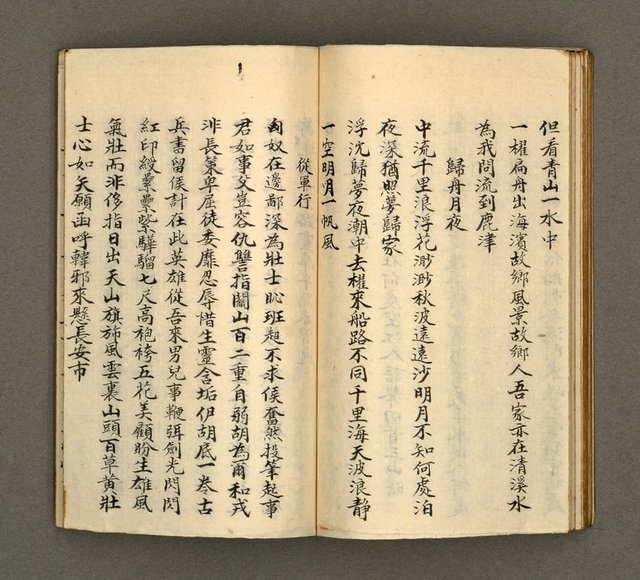 但看青山一水中
一櫂扁舟出海濱故鄉風景故鄉人吾家亦在清溪水
為我問流到鹿津
歸舟月夜
中流千里浪浮花渺渺秋波遠遠沙明月不知何處泊
夜深猶照夢歸家
浮沈歸夢夜潮中去櫂來船路不同千里海天波浪靜
一空明月一帆風
從軍行
匈奴在邊鄙深為壯士恥班超不求侯奮然投筆起事
君如事父豈容仇讐指關山百二重自弱胡為爾和戎
非長策卑屈徒委靡忍辱惜生靈含垢伊胡底一卷古
兵書留侯計在此英雄從吾來男兒事鞭弭劍光閃閃
紅印綬纍纍紫驊騮七尺高袍袴五花美顧盼生雄風
氣壯而非侈指日出天山旗旆風雲裏山頭百草黃壯
士心如矢願函呼韓邪來懸長安市